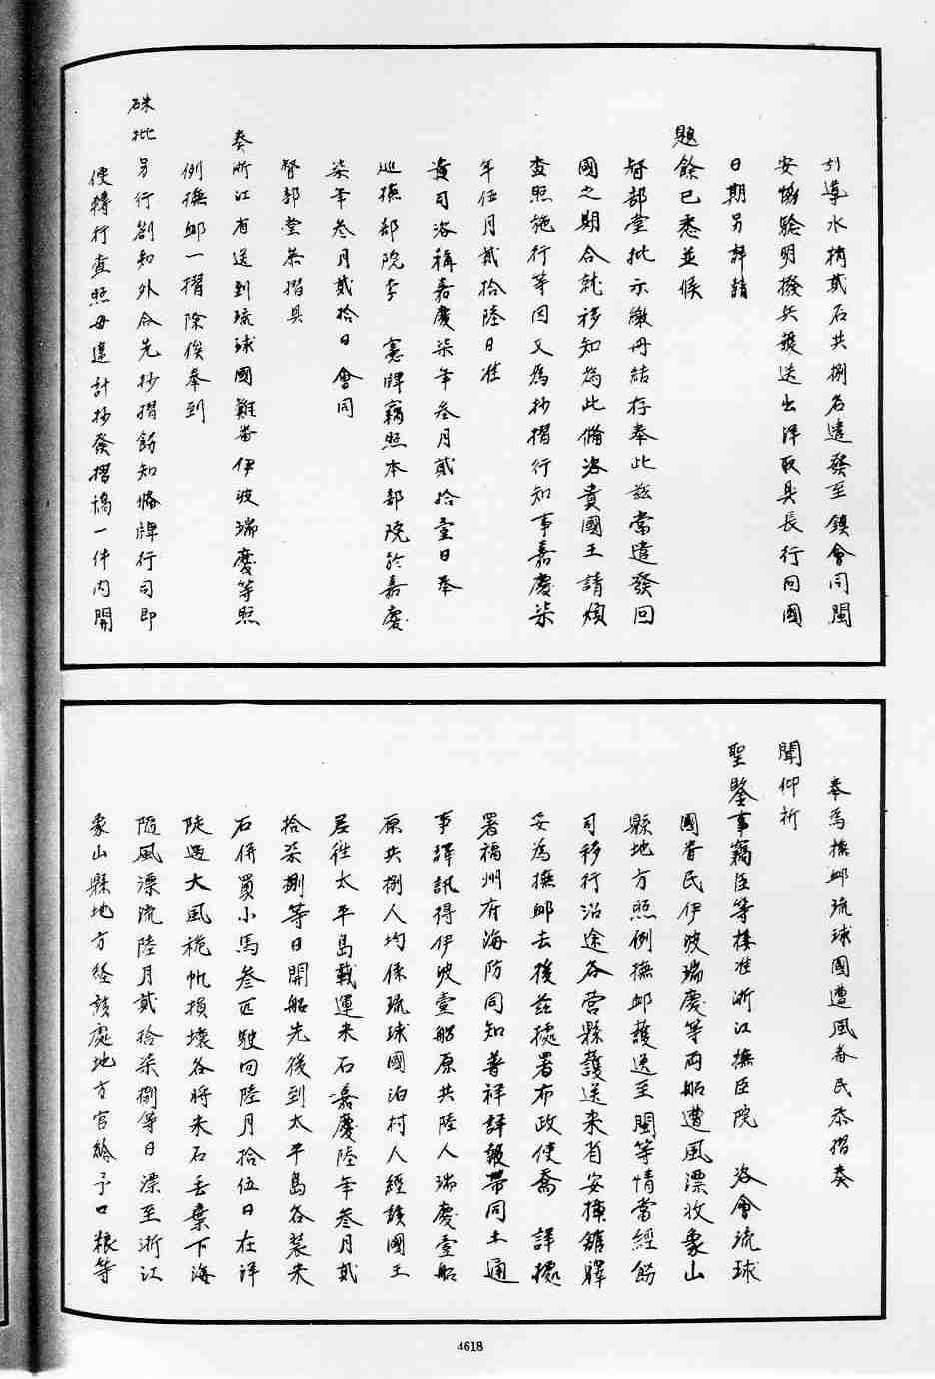 引導水梢貳石共捌名遣發至鎮會同閩
安協驗明撥兵護送出洋取具長行回國
日期另詳請
題餘已悉並候
督部堂批示繳冊結存奉此茲當遣發回
國之期合就移知為此備咨貴國王請煩
查照施行等因又為抄摺行知事嘉慶柒
年伍月貳拾陸日准
貴司咨稱嘉慶柒年叁月貳拾壹日奉
巡撫部院李 憲牌竊照本部院於嘉慶
柒年叁月貳拾日會同
督部堂恭摺具
奏浙江省送到琉球國難番伊波瑞慶等照
例撫卹一摺除俟奉到
硃批另行劄知外合先抄摺飭知備牌行司即
便轉行查照毋違計抄發摺稿一件內開
奉為撫卹琉球國遭風番民恭摺奏
聞仰祈
聖鑒事竊臣等接准浙江撫臣阮 咨會琉球
國番民伊波瑞慶等兩船遭風漂收象山
縣地方照例撫卹護送至閩等情當經飭
司移行沿途各營縣護送來省安插館驛
妥為撫卹去後茲據署布政使喬 詳據
署福州府海防同知普祥詳報帶同土通
事譯訊得伊波壹船原共陸人瑞慶壹船
原共捌人均係琉球國泊村人經該國王
差往太平島載運米石嘉慶陸年叁月貳
拾柒捌等日開船先後到太平島各裝米
石併買小馬叁匹駛回陸月拾伍日在洋
陡遇大風桅帆損壞各將米石丟棄下海
隨風漂流陸月貳拾柒捌等日漂至浙江
象山縣地方經該處地方官給予口糧等
4618